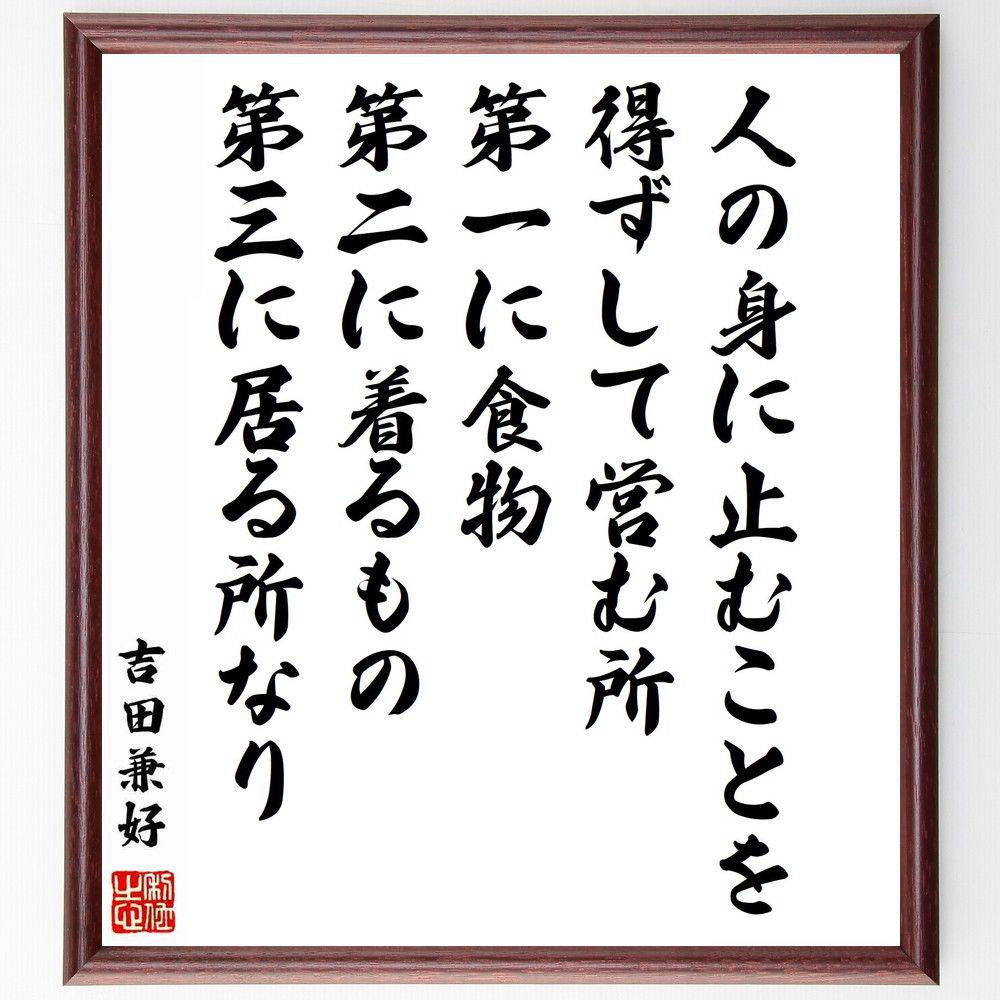 人の身に止むことを
得ずして営む所
第一に食物
第二に着るもの
第三に居る所なり
吉田兼好